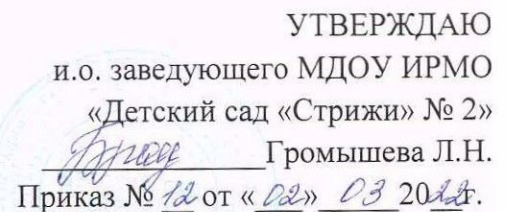 УТВЕРЖДАЮ
и.о. заведующего МДОУ ИРМО
«Детский сад «Стрижи» № 2»
Громышева Л.Н.
Приказ № 12 от «02» 03 2022г.